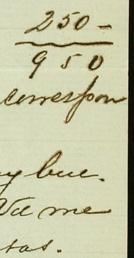 250-
950
correspon
y buc.
Vd me
sas.